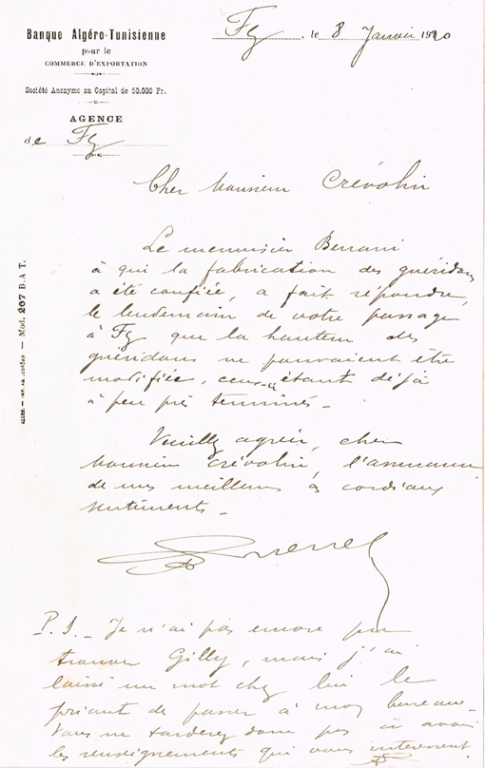 Banque Algéro-Tunisienne
pour le
COMMERCE D'EXPORTATION
Société Anonyme au Capital de 50.000 Fr.
AGENCE
de Fez
Fez, le 8 Janvier 1920
ALGER — — Mod. 207 B.A.T.
Cher Monsieur Crévolin
Le menuisier Benani
à qui la fabrication des guéridons
a été confiée, a fait répondre,
le lendemain de votre passage
à Fez que la hauteur des
guéridons ne pouvaient être
modifiée, ceux-ci étant déjà
à peu près terminés.
Veuillez agréer, cher
Monsieur Crévolin, l'assurance
de mes meilleurs & cordiaux
sentiments.
P.S. — Je n'ai pas encore pu
trouver Gilly, mais j'ai
laissé un mot chez lui le
priant de passer à mon bureau.
Vous ne tarderez donc pas à avoir
les renseignements qui vous intéressent.